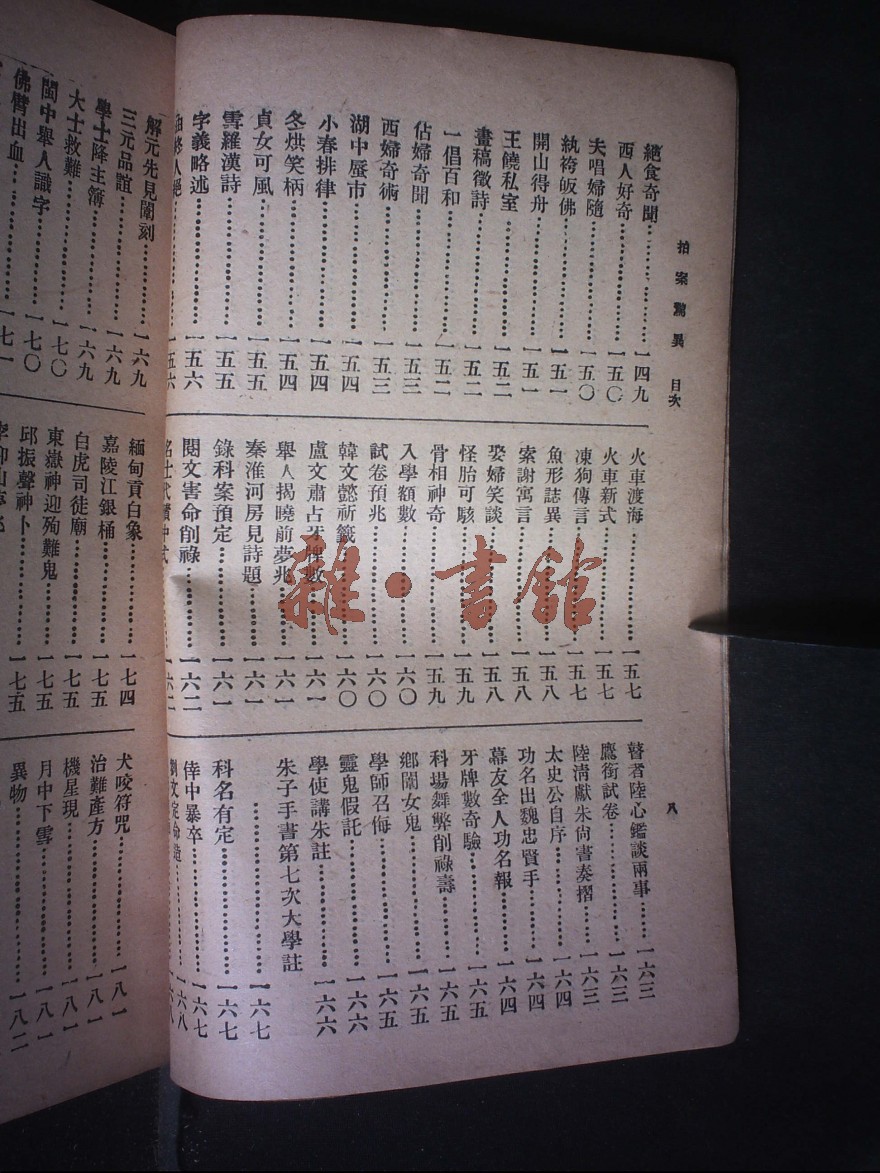 拍案驚異 目次
八
絕食奇聞………一四九
西人好奇………一五〇
夫唱婦隨………一五〇
紈袴皈佛………一五一
開山得舟………一五一
王饒私室………一五二
畫稿徵詩………一五二
一倡百和………一五二
佔婦奇聞………一五三
西婦奇術………一五三
湖中蜃市………一五四
小春排律………一五四
冬烘笑柄………一五四
貞女可風………一五五
雪羅漢詩………一五五
字義略述………一五六
人絕………一五六
火車渡海………一五七
火車新式………一五七
凍狗傳言………一五七
魚形誌異………一五八
索謝寓言………一五八
娶婦笑談………一五八
怪胎可駭………一五九
骨相神奇………一五九
入學額數………一六〇
試卷預兆………一六〇
韓文懿祈籤………一六〇
盧文肅占牙牌數………一六一
舉人揭曉前夢兆………一六一
秦淮河房見詩題………一六一
錄科案預定………一六一
閱文害命削祿………一六二
名士代………一六二
瞽者陸心鑑談兩事………一六三
鷹銜試卷………一六三
陸淸獻朱尙書奏摺………一六三
太史公自序………一六四
功名出魏忠賢手………一六四
幕友全人功名報………一六四
牙牌數奇驗………一六五
科場舞弊削祿壽………一六五
鄉闈女鬼………一六五
學師召侮………一六五
靈鬼假託………一六六
學使講朱註………一六六
朱子手書第七次大學註
………一六七
科名有定………一六七
倖中暴卒………一六七
劉文定命造………一六八
解元先見闈刻………一六九
三元品誼………一六九
學士降主簿………一六九
大士救難………一七〇
閩中舉人識字………一七〇
佛臂出血………一七一
緬甸貢白象………一七四
嘉陵江銀桶………一七五
白虎司徒廟………一七五
東嶽神迎殉難鬼………一七五
邱振聲神卜………一七五
犬咬符咒………一八一
治難產方………一八一
機星現………一八一
月中下雪………一八一
異物………一八二
雜·書館